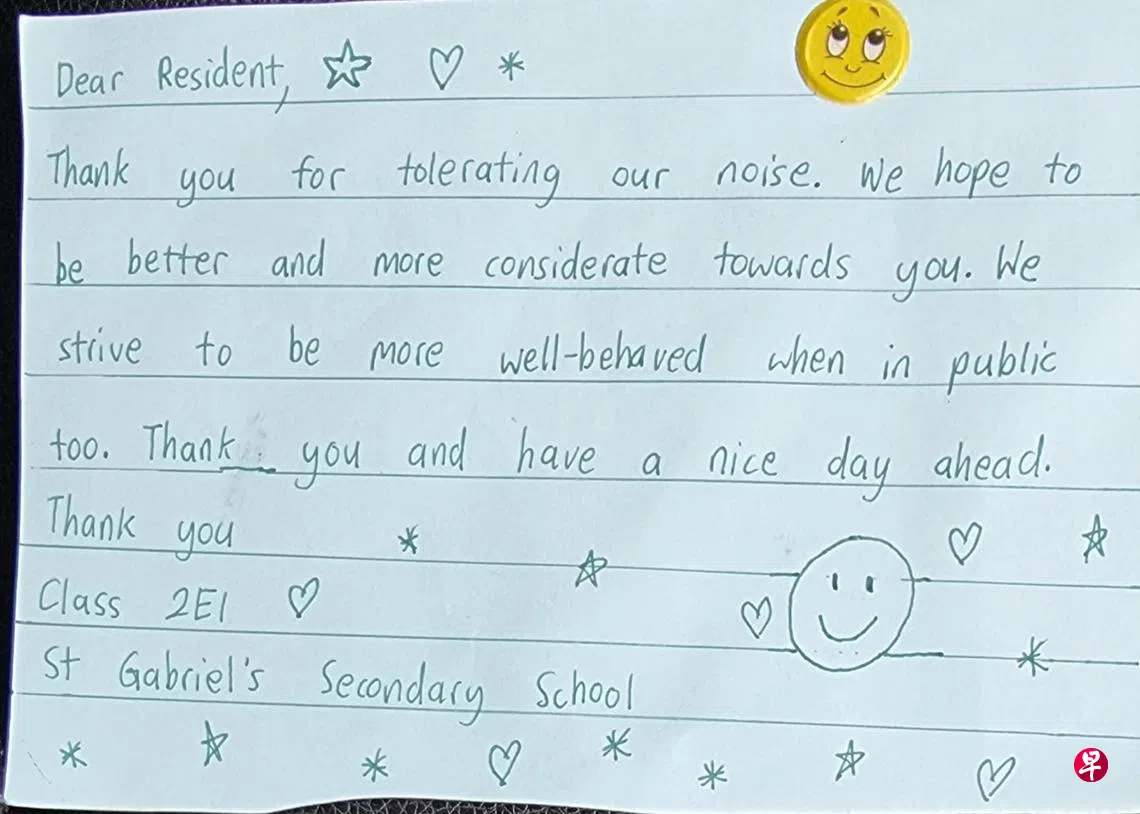 Dear Resident,
Thank you for tolerating our noise. We hope to
be better and more considerate towards you. We
strive to be more well-behaved when in public
too. Thank you and have a nice day ahead.
Thank you
Class 2E1
St Gabriel's Secondary School
早